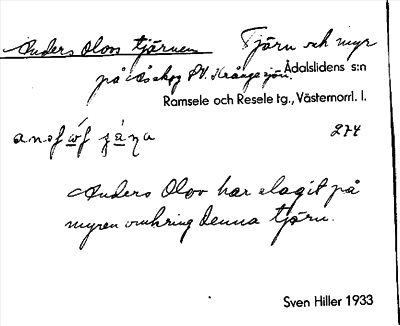 Anders Olovs tjärnen Tjärn och myr
på Åsskog SV. Krångesjön. Ådalslidens s:n
Ramsele och Resele tg., Västernorrl. l.
274
Anders Olov har slagit på
myren omkring denna tjärn.
Sven Hiller 1933